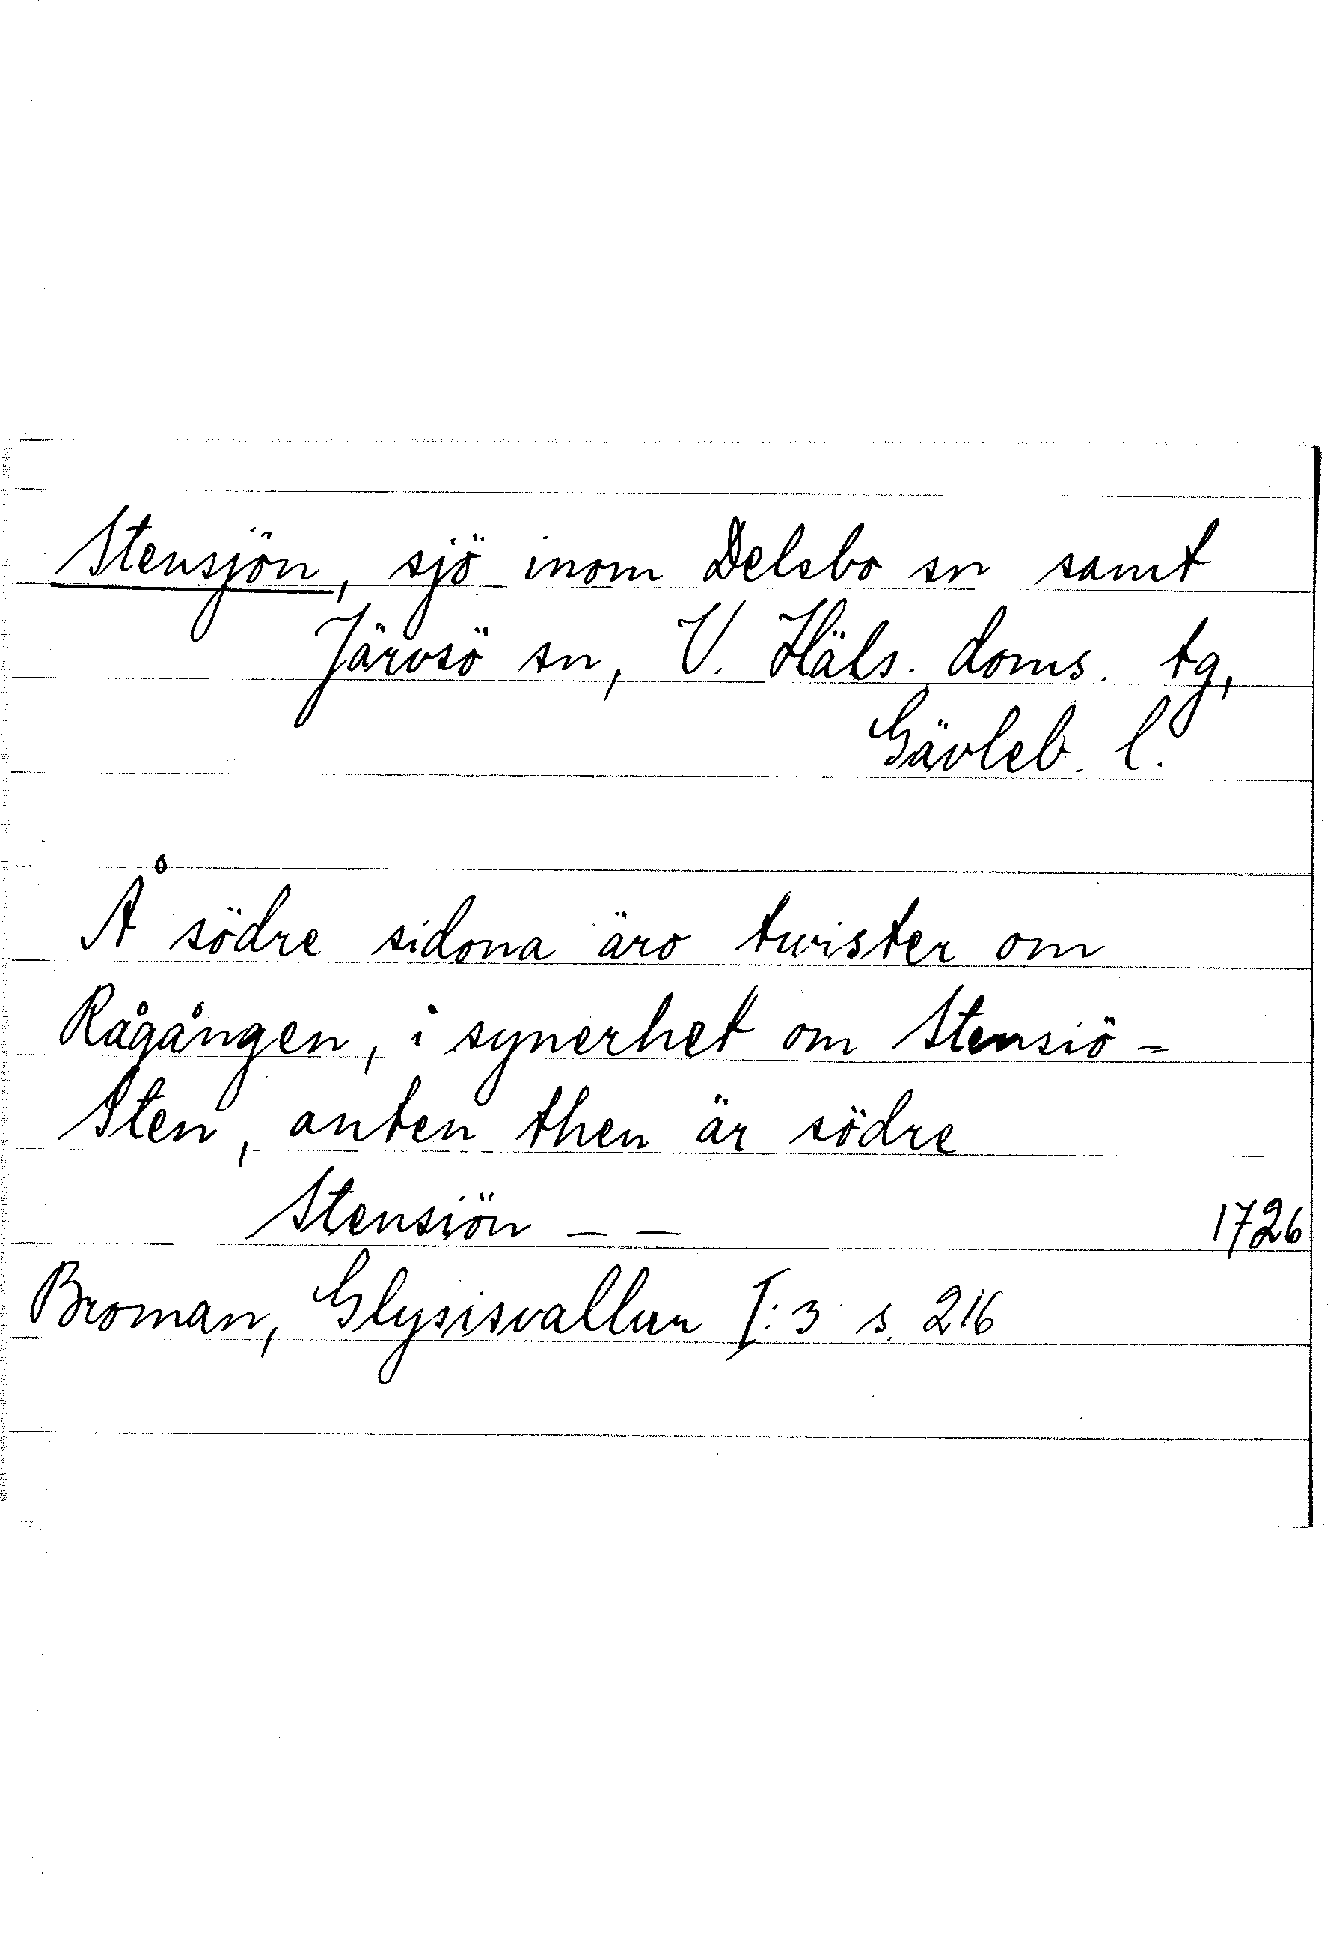 Stensjön, sjö inom Delsbo sn samt
Järvsö sn, V. Häls. doms. tg,
Gävleb. l.
Å södre sidona äro twister om
Rågången, i synerhet om Stensiö-
Sten, anten then är södre
Stensiön _ _ 1726
Broman, Glysisvallur I:3 s. 216